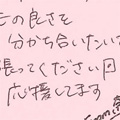 の良さを
分かち合いたい
張ってください
応援してます
from